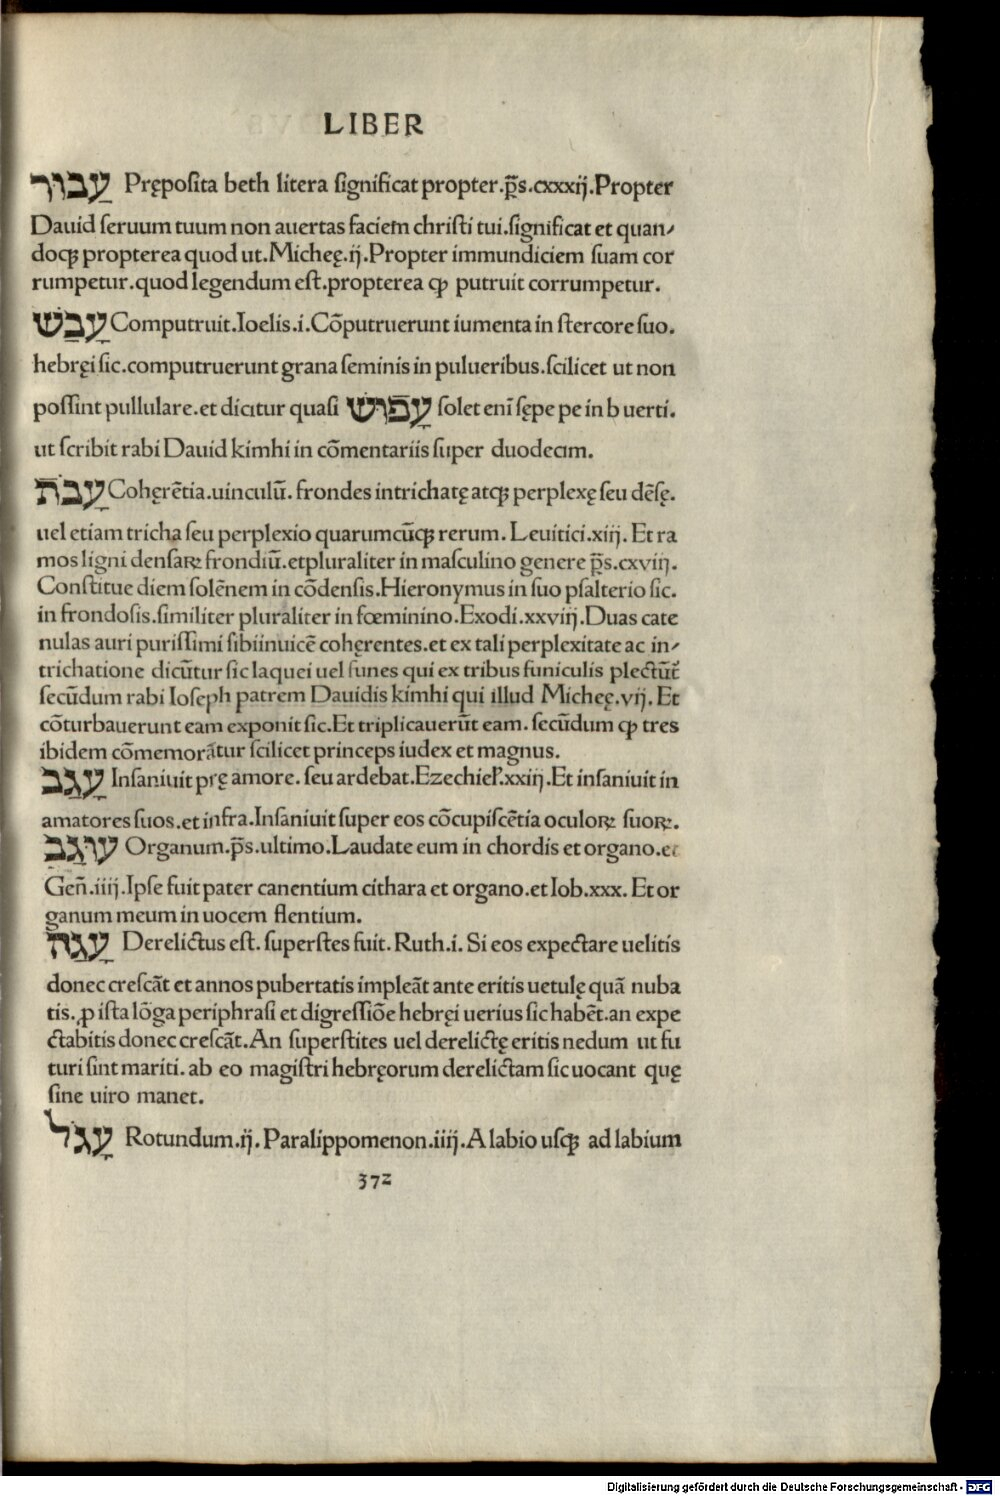 LIBER
עֲבוּר Pręposita beth litera significat propter.p̄s.cxxxij.Propter
Dauid seruum tuum non auertas faciem christi tui.significat et quan⸗
doqꝫ propterea quod ut.Michęę.ij.Propter immundiciem suam cor
rumpetur.quod legendum est.propterea ꝙ putruit corrumpetur.
עָבַשׁ Computruit.Ioelis.i.Cõputruerunt iumenta in stercore suo.
hebręi sic.computruerunt grana seminis in pulueribus.scilicet ut non
possint pullulare.et dicitur quasi עָפוּשׁ solet enī sępe pe in b uerti.
ut scribit rabi Dauid kimhi in cõmentariis super duodecim.
עָבֹת Cohęrẽtia.uinculũ. frondes intrichatę atqꝫ perplexę seu dẽsę.
uel etiam tricha seu perplexio quarumcũqꝫ rerum. Leuitici.xiij. Et ra
mos ligni densaꝝ frondiũ.etpluraliter in masculino genere p̄s.cxvij.
Constitue diem solẽnem in cõdensis.Hieronymus in suo psalterio sic.
in frondosis.similiter pluraliter in fœminino.Exodi.xxviij.Duas cate
nulas auri purissimi sibiinuicẽ cohęrentes.et ex tali perplexitate ac in⸗
trichatione dicũtur sic laquei uel funes qui ex tribus funiculis plectũt᷑
secũdum rabi Ioseph patrem Dauidis kimhi qui illud Michęę.vij. Et
cõturbauerunt eam exponit sic.Et triplicauerũt eam. secũdum ꝙ tres
ibidem cõmemorãtur scilicet princeps iudex et magnus.
עָגַב Insaniuit prę amore. seu ardebat.Ezechiel᷑.xxiij.Et insaniuit in
amatores suos.et infra.Insaniuit super eos cõcupiscẽtia oculoꝝ suoꝝ.
עוּגַב Organum.p̄s.ultimo.Laudate eum in chordis et organo.et
Geñ.iiij.Ipse fuit pater canentium cithara et organo.et Iob.xxx. Et or
ganum meum in uocem flentium.
עָגַה Derelictus est. superstes fuit. Ruth.i. Si eos expectare uelitis
donec crescãt et annos pubertatis impleãt ante eritis uetulę quã nuba
tis.ꝓ ista lõga periphrasi et digressiõe hebręi uerius sic habẽt.an expe
ctabitis donec crescãt.An superstites uel derelictę eritis nedum ut fu
turi sint mariti. ab eo magistri hebręorum derelictam sic uocant quę
sine uiro manet.
עָגֹל Rotundum.ij.Paralippomenon.iiij.A labio usqꝫ ad labium
372
Digitalisierung gefördert durch die Deutsche Forschungsgemeinschaft - DFG